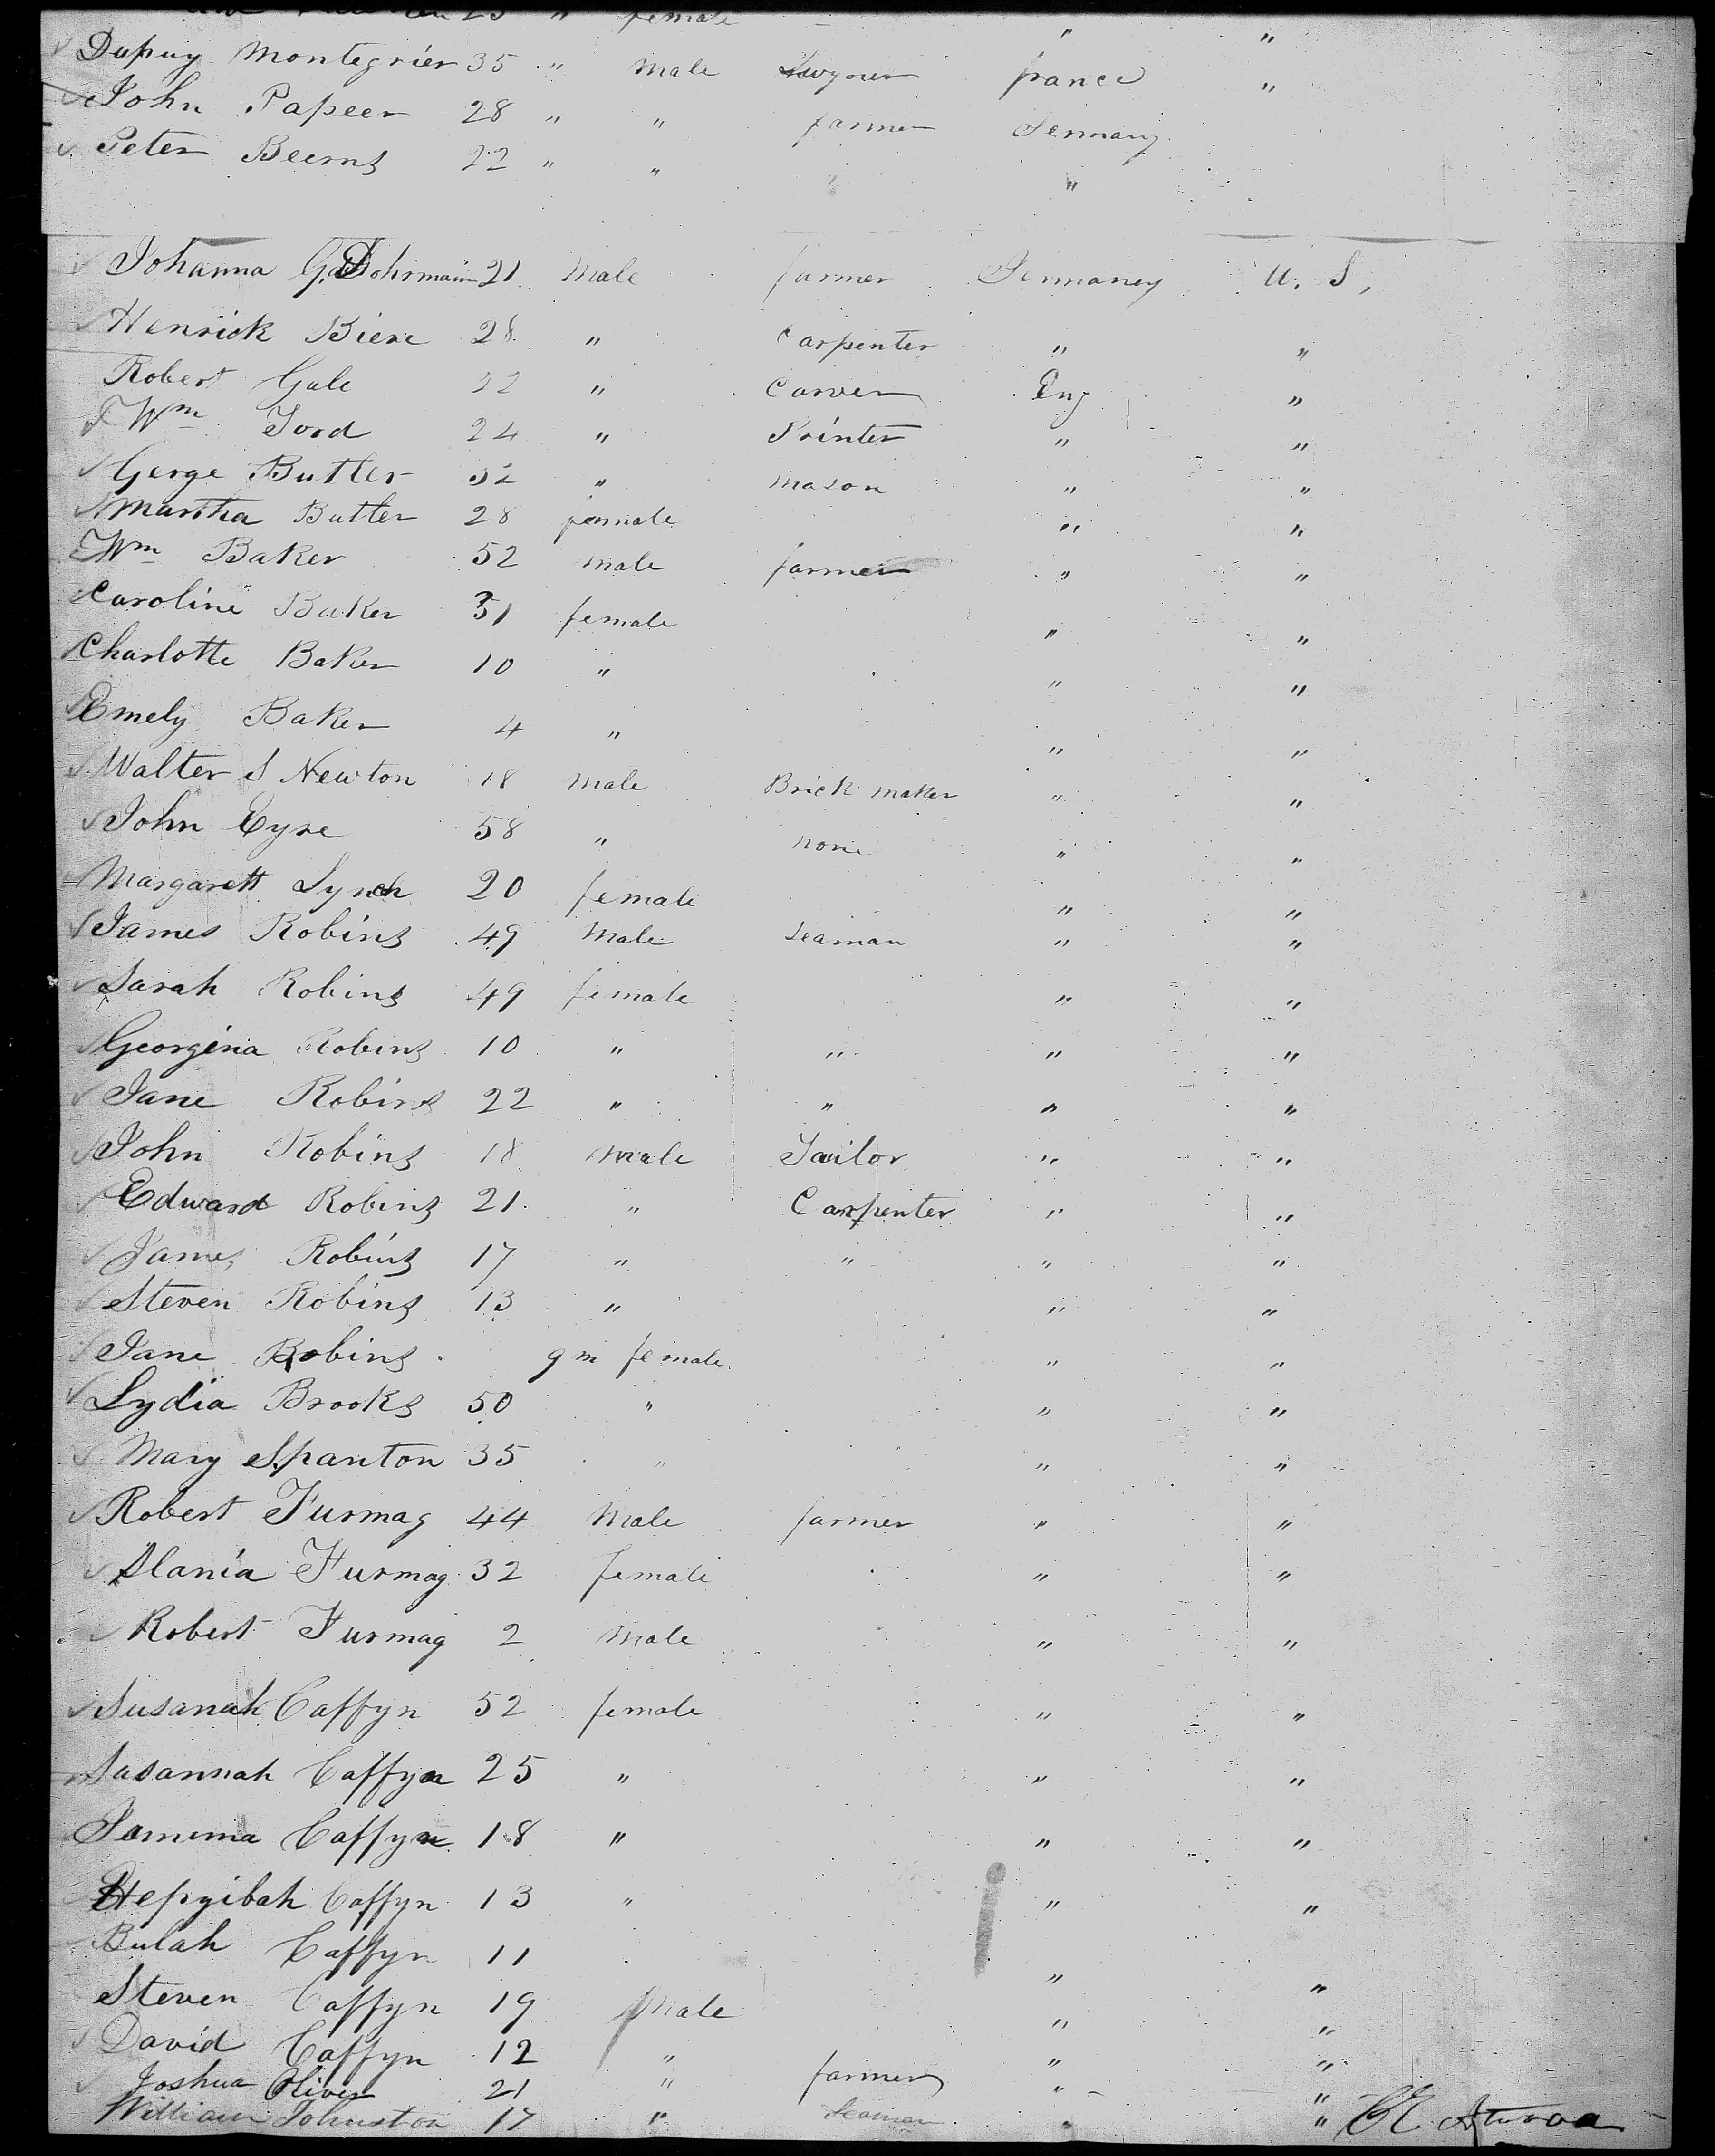 25 " female " "
Dupuy Montegrier 35 " Male france "
John Papeer 28 " " farmer Germany "
Peter Beerns 22 " " "
Johanna G. Dohrmann 21 Male farmer Germaney U. S,
Henrick Biere 28 " Carpenter " "
Robert Gale 22 " Carver Eng "
Wm Ford 24 " Printer " "
Gerge Butler 32 " Mason " "
Martha Butler 28 female " "
Wm Baker 52 male farmer " "
Caroline Baker 31 female " "
Charlotte Baker 10 " " "
Emely Baker 4 " " "
Walter S Newton 18 Male Brick maker " "
John Eyre 58 " none " "
Margarett Lynch 20 female " "
James Robins 49 Male Seaman " "
Sarah Robins 49 female " "
Georgina Robins 10 " " " "
Jane Robins 22 " " " "
John Robins 18 Male Tailor " "
Edward Robins 21 " Carpenter " "
James Robins 17 " " " "
Steven Robins 13 " " "
Jane Robins 9 m female " "
Lydia Brooks 50 " " "
Mary Spanton 35 " " "
Robert Furmag 44 Male farmer " "
Alania Furmag 32 female " "
Robert Furmag 2 Male " "
Susanah Caffyn 52 female " "
Susannah Caffyn 25 " " "
Jamima Caffyn 18 " " "
Hepzibah Caffyn 13 " " "
Bulah Caffyn 11 " "
Steven Caffyn 19 Male " "
David Caffyn 12 " " "
Joshua Oliver 21 " farmer " "
William Johnston 17 " Seaman " "